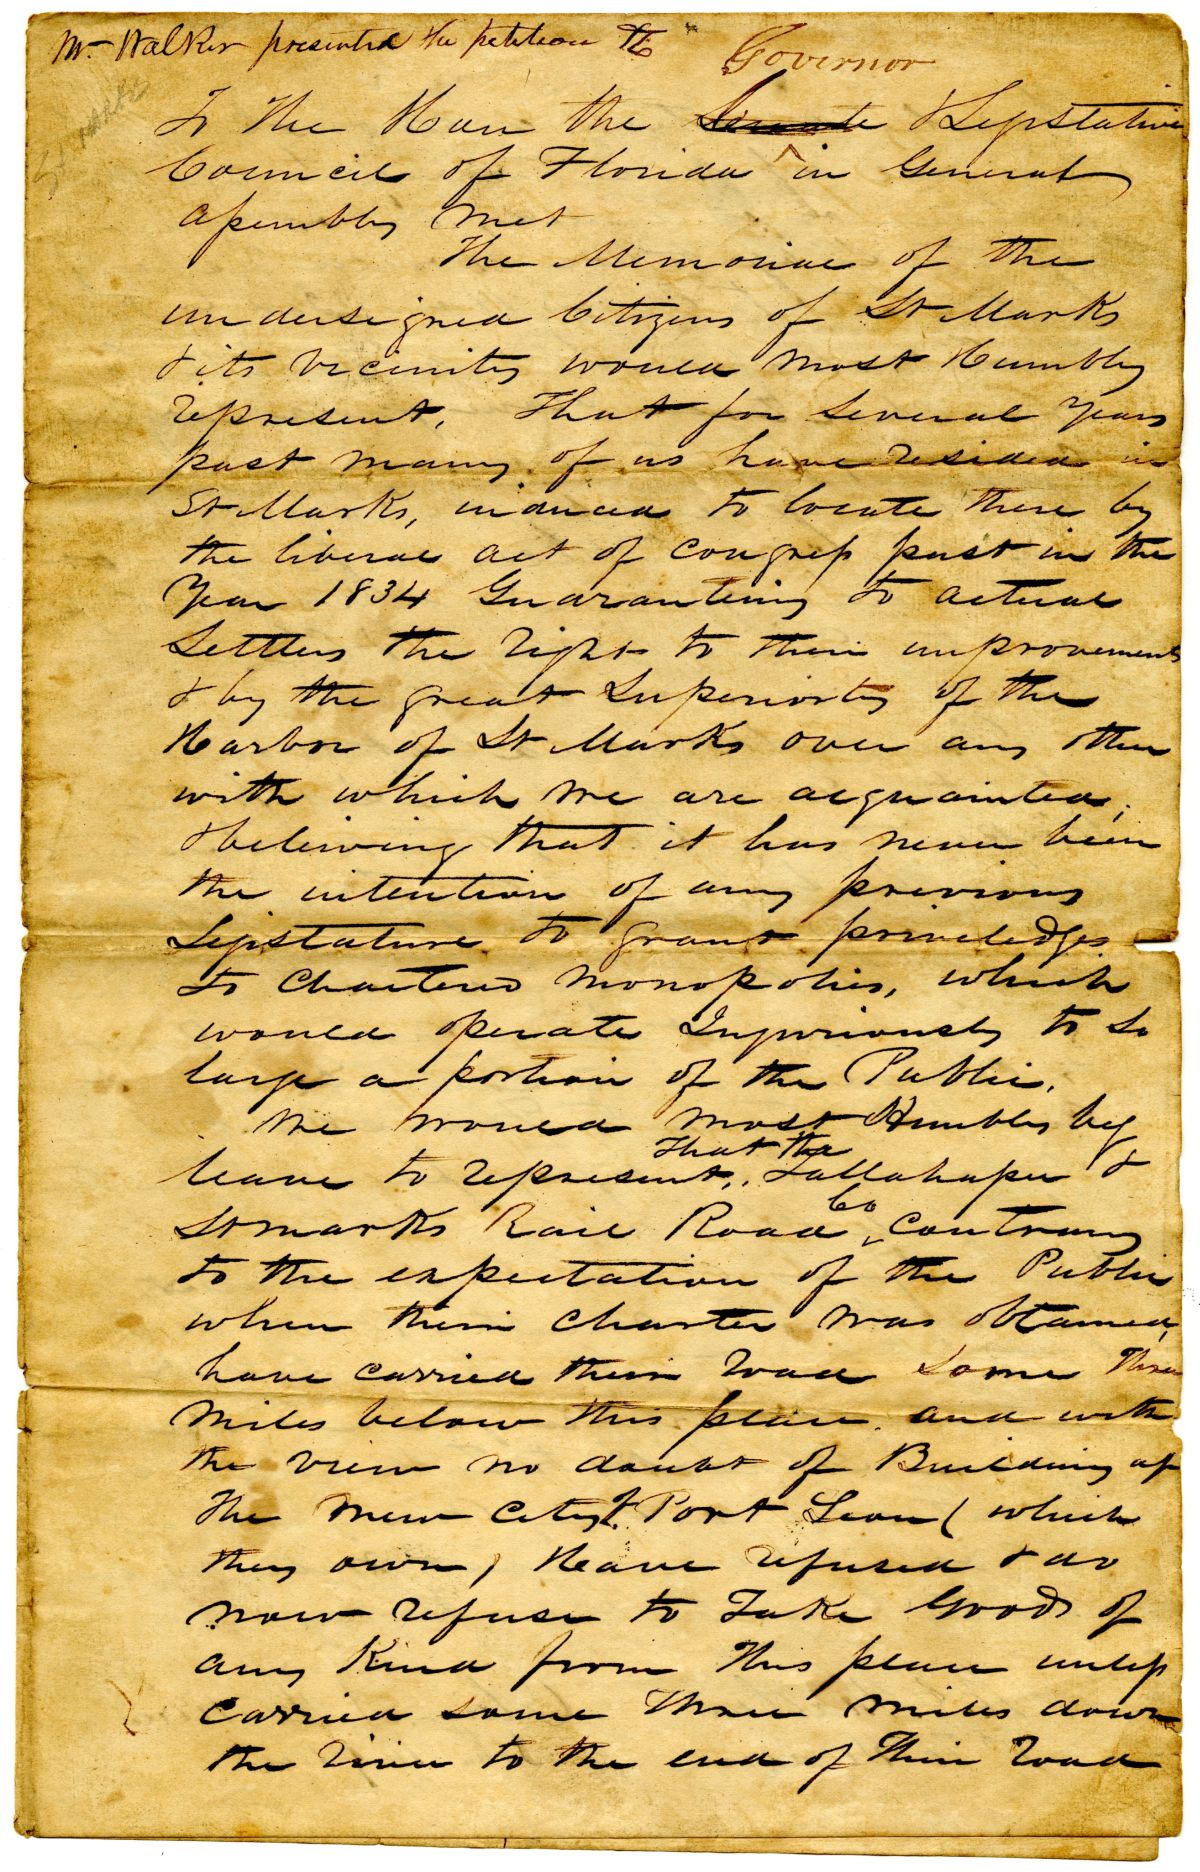 Mr Walker presented the petition &c
Governor
St Marks
To The Hon the Senate & Legislative
Council of Florida in General
assembly met
The Memorial of the
undersigned Citizens of St Marks
& its vicinity would most Humbly
represent, That for several Years
past many of us have resided in
St Marks, induced to locate there by
the liberal act of congress past in the
Year 1834 Guaranteeing to actual
Settlers the right to their improvements
& by the great Superiorty of the
Harbor of St Marks over any other
with which we are acquainted,
& believing that it has never been
the intention of any previous
Legislature to grant priveledges
to Chartered monopolies, which
would operate Injuriously to so
large a portion of the Public.
We would most Humbly beg
leave to represent, That the Tallahassee &
St marks Rail Road Co, contrary
to the expectation of the Public
when their charter was obtained,
have carried their road some three
miles below this place and with
the view no doubt of Building up
the New City of Port Leon ( which
they own ) Have refused & do
now refuse to Take Goods of
any Kind from This place unless
carried some three miles down
the river to the end of Their road